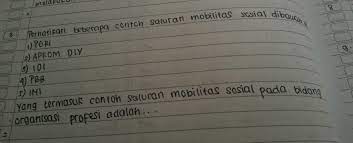 8 Perhatikan beberapa contoh saluran mobilitas sosial dibawah
1) PGRI
2) APKOM DIY
3) IDI
4) PBB
5) INI
Yang termasuk contoh saluran mobilitas sosial pada bidang
organisasi profesi adalah...